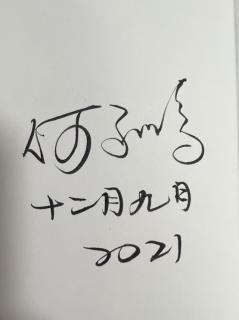 何子鹏
十二月九月
2021